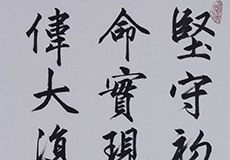 堅守初
命實現
偉大復